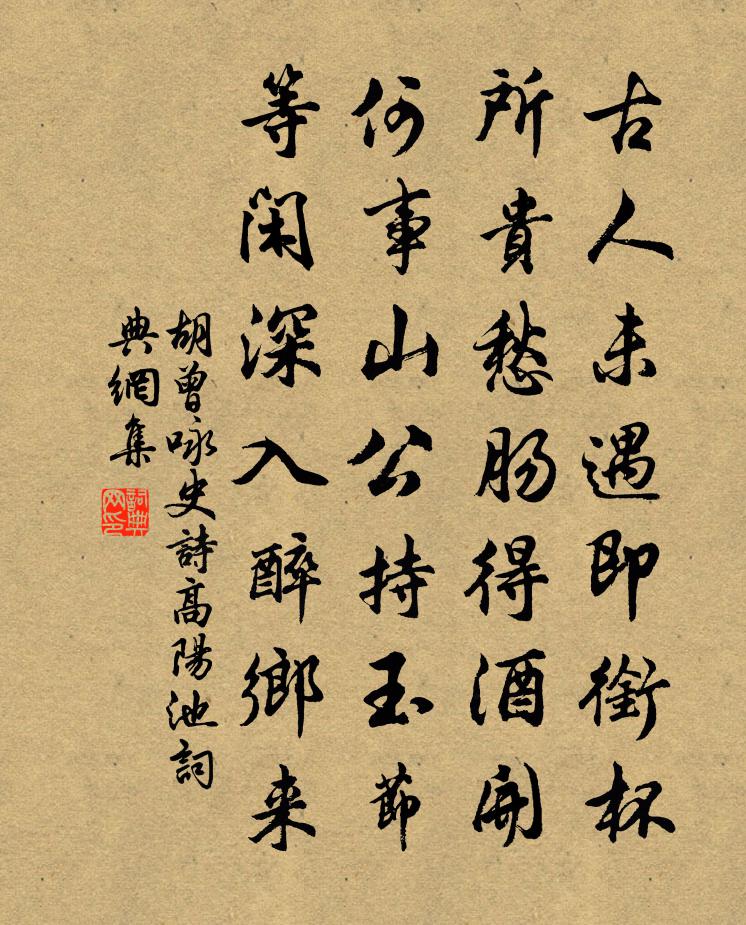 古人未遇即銜杯
所貴愁腸得酒開
何事山公持玉節
等閑深入醉鄉来
胡曾咏史詩高陽池詞
典網集
詞典
网印